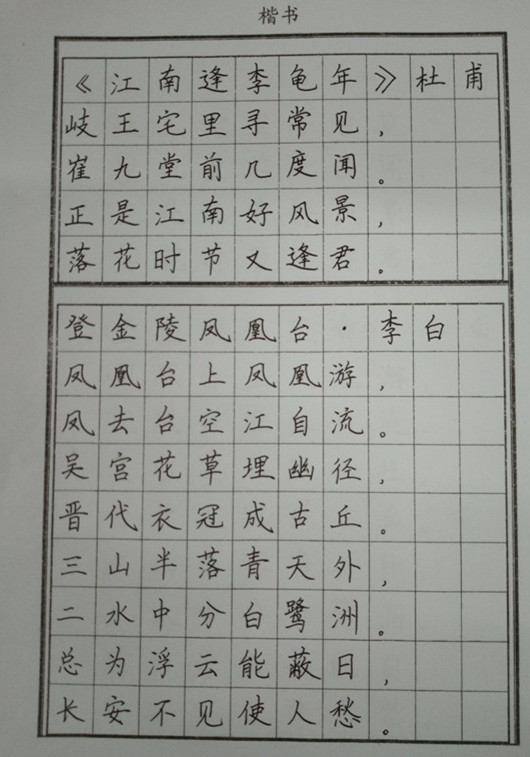 楷书
《江南逢李龟年》杜甫
岐王宅里寻常见，
崔九堂前几度闻。
正是江南好风景，
落花时节又逢君。
登金陵凤凰台·李白
凤凰台上凤凰游，
凤去台空江自流。
吴宫花草埋幽径，
晋代衣冠成古丘。
三山半落青天外，
二水中分白鹭洲。
总为浮云能蔽日，
长安不见使人愁。